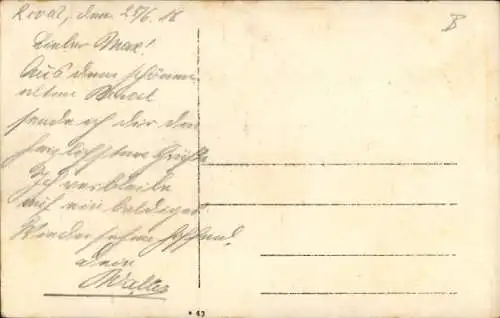 Reval, den 27/6. 18
Lieber Max!
Aus dem schönen
alten Reval
sende ich dir die
herzlichsten Grüße
Ich verbleibe
auf ein baldiges
Wiedersehen hoffend.
dein
Walter
* 63